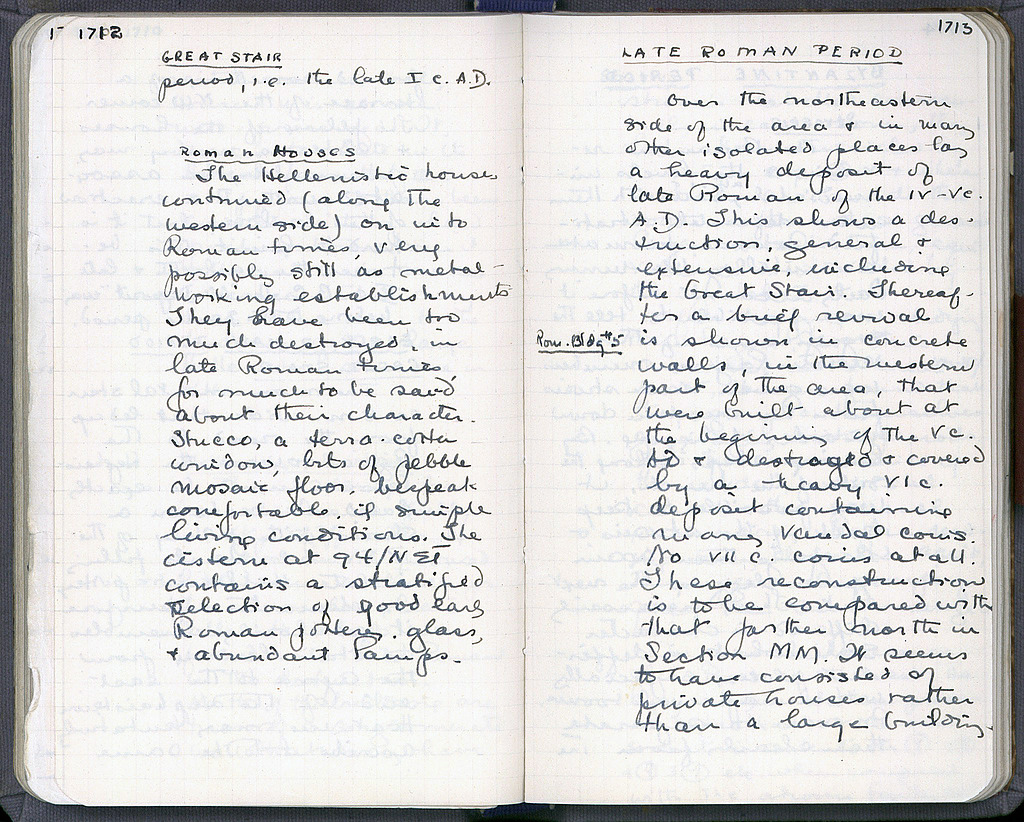 1712
GREAT STAIR
period, i.e. the late I c. A.D.
ROMAN HOUSES
The Hellenistic houses
continued (along the
western side) on into
Roman times, very
possibly still as metal-
working establishments
They have been too
much destroyed in
late Roman times
for much to be said
about their character.
Stucco, a terra-cotta
corridors, bits of pebble
mosaic floor, bespeak
comfortable if simple
living conditions. The
cistern at 94/NET
contains a stratified
selection of good early
Roman pottery, glass,
& abundant lamps.
1713
LATE ROMAN PERIOD
Over the northeastern
side of the area & in many
other isolated places lay
a heavy deposit of
late Roman of the IV-Vc.
A.D. This shows a des-
truction, general &
extensive, including
the Great Stair. Thereaf-
ter a brief revival
Rom. Bldg #5 is shown in concrete
walls, in the western
part of the area, that
were built about at
the beginning of the Vc.
AD & destroyed & covered
by a heavy VI c.
deposit containing
many Vandal coins.
No VII c coins at all.
These reconstruction
is to be compared with
that farther north in
Section MM. It seems
to have consisted of
private houses rather
than a large building.